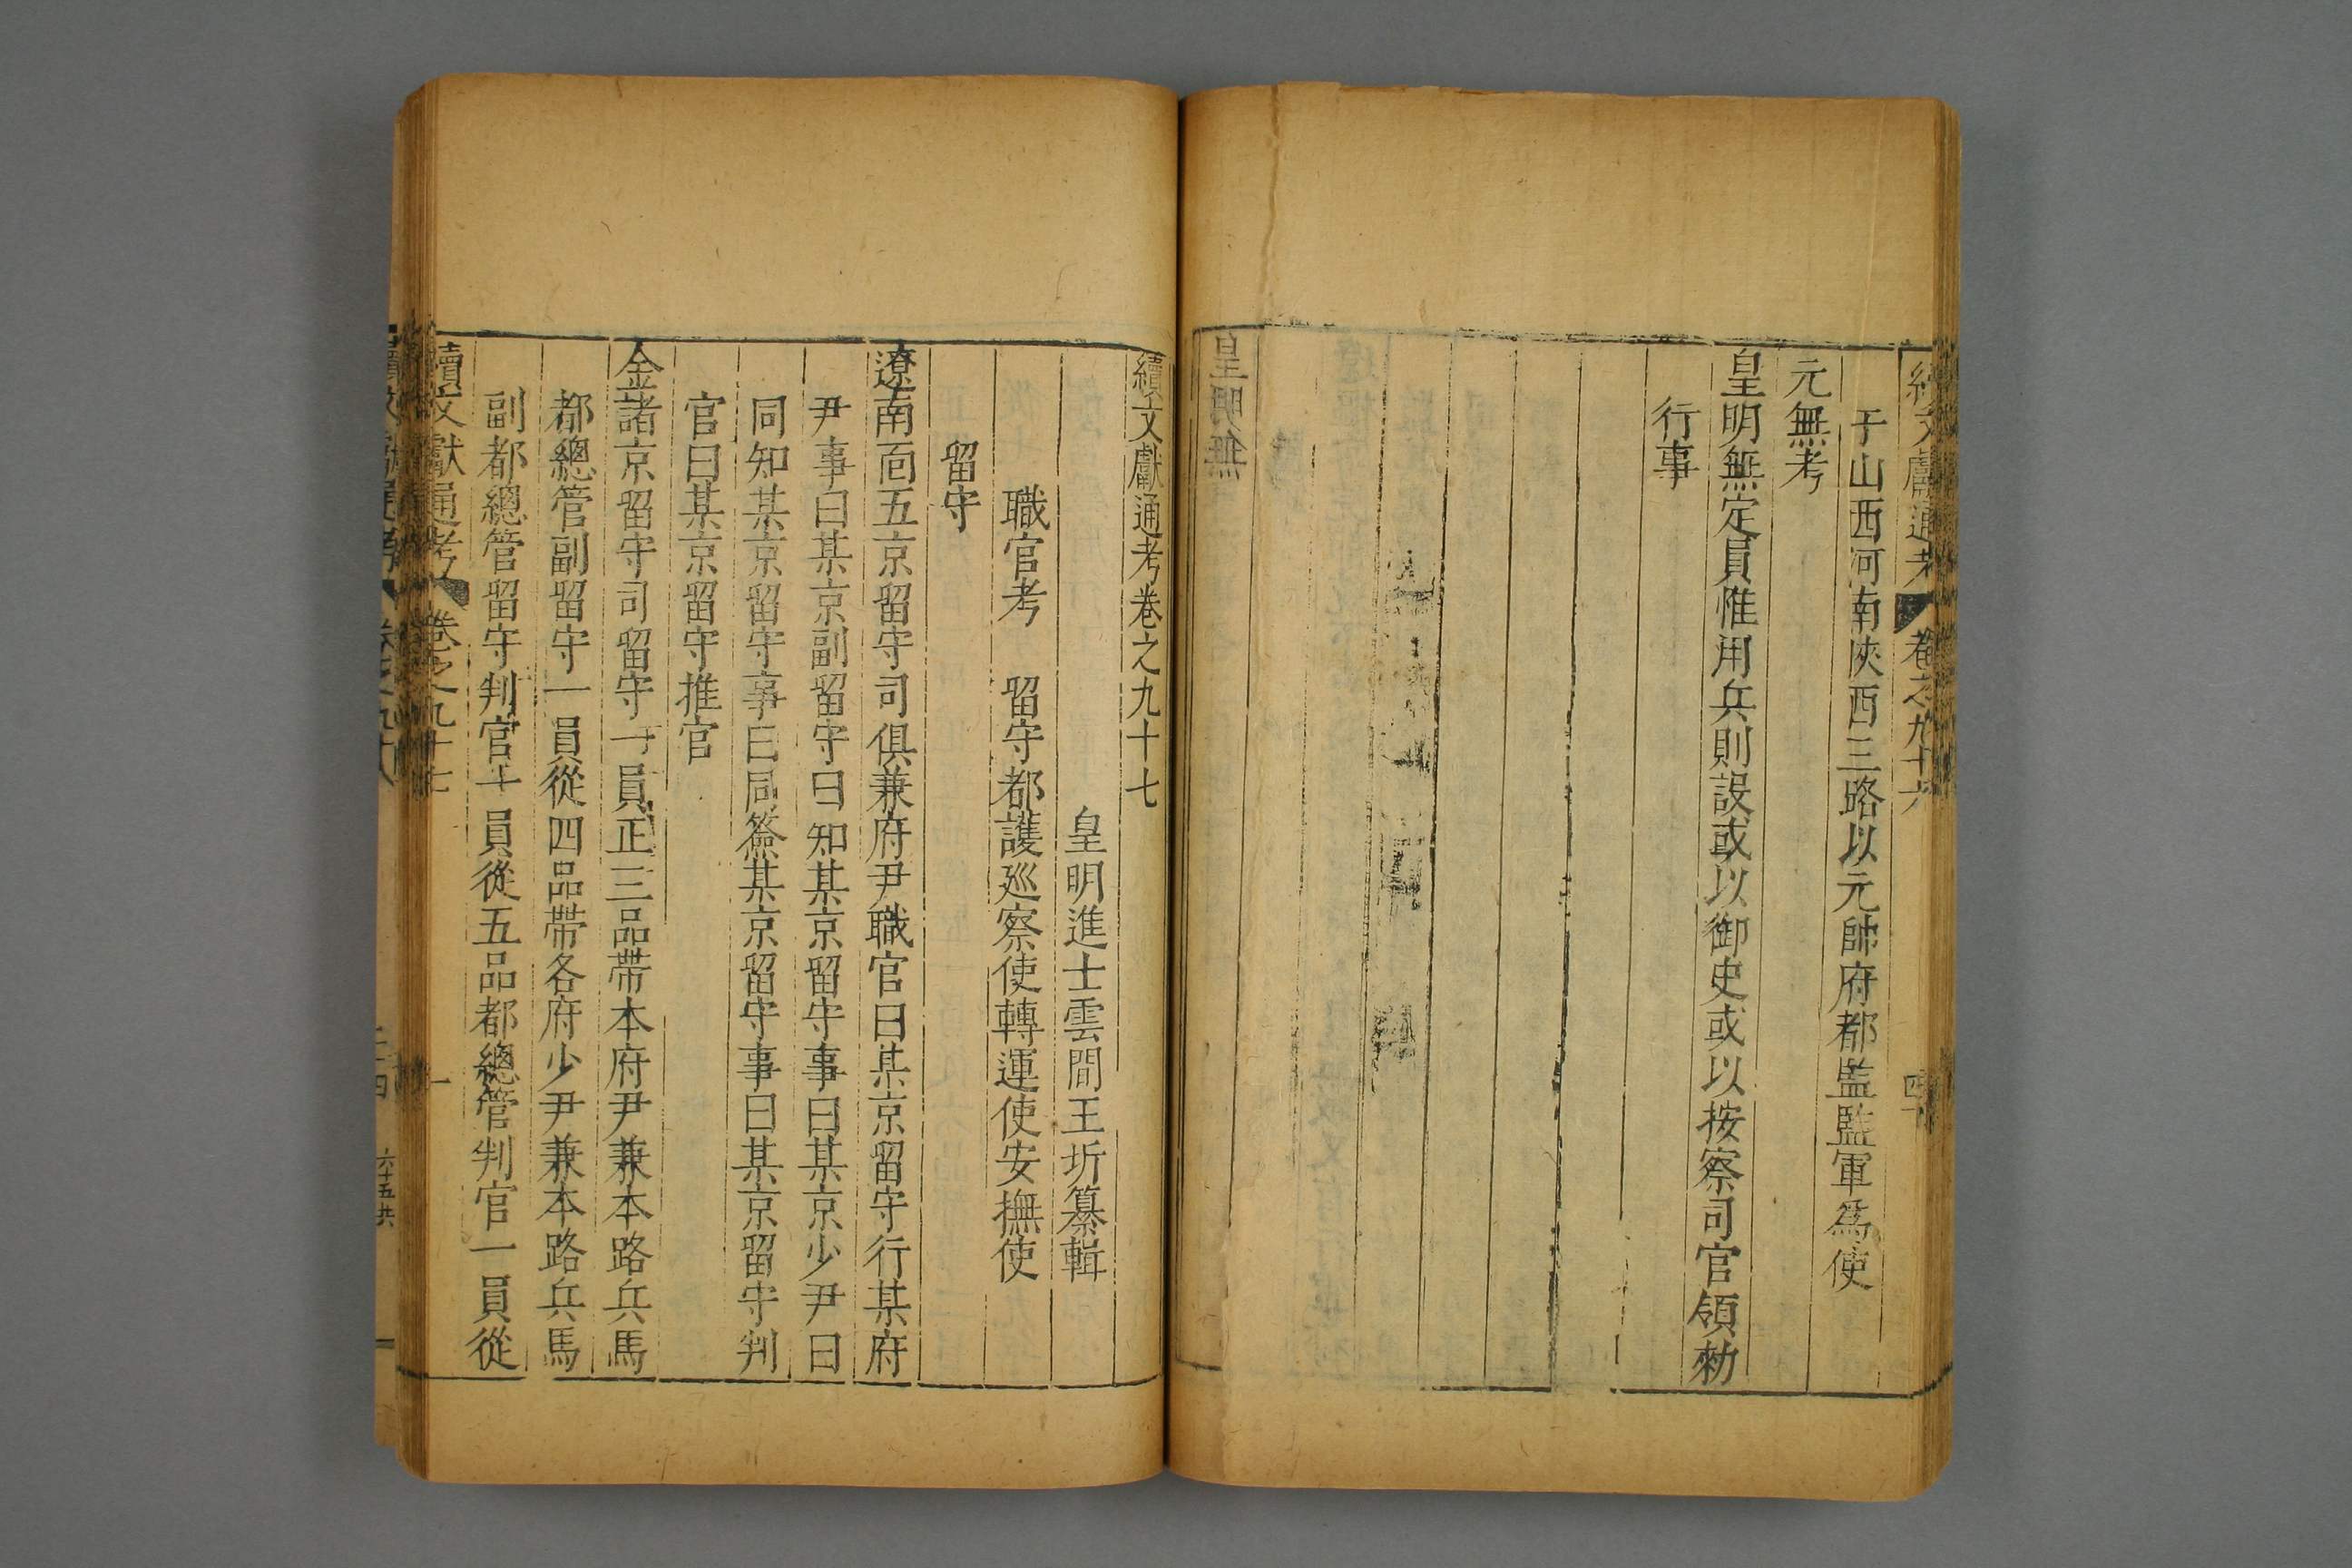 續文獻通考 卷之九十六 四十
于山西河南陜西三路以元帥府都監監軍爲使
元無考
皇明無定員惟用兵則設或以御史或以按察司官領勑
行事
皇明無
續文獻通考卷之九十七
皇明進士雲間王圻纂輯
職官考 留守都護廵察使轉運使安撫使
留守
遼南面五京留守司俱兼府尹職官曰某京留守行某府
尹事曰某京副留守曰知某京留守事曰某京少尹曰
同知某京留守事曰同簽某京留守事曰某京留守判
官曰某京留守推官
金諸京留守司留守一員正三品帶本府尹兼本路兵馬
都總管副留守一員從四品帶各府少尹兼本路兵馬
副都總管留守判官一員從五品都總管判官一員從
續文獻通考 卷之九十七 一